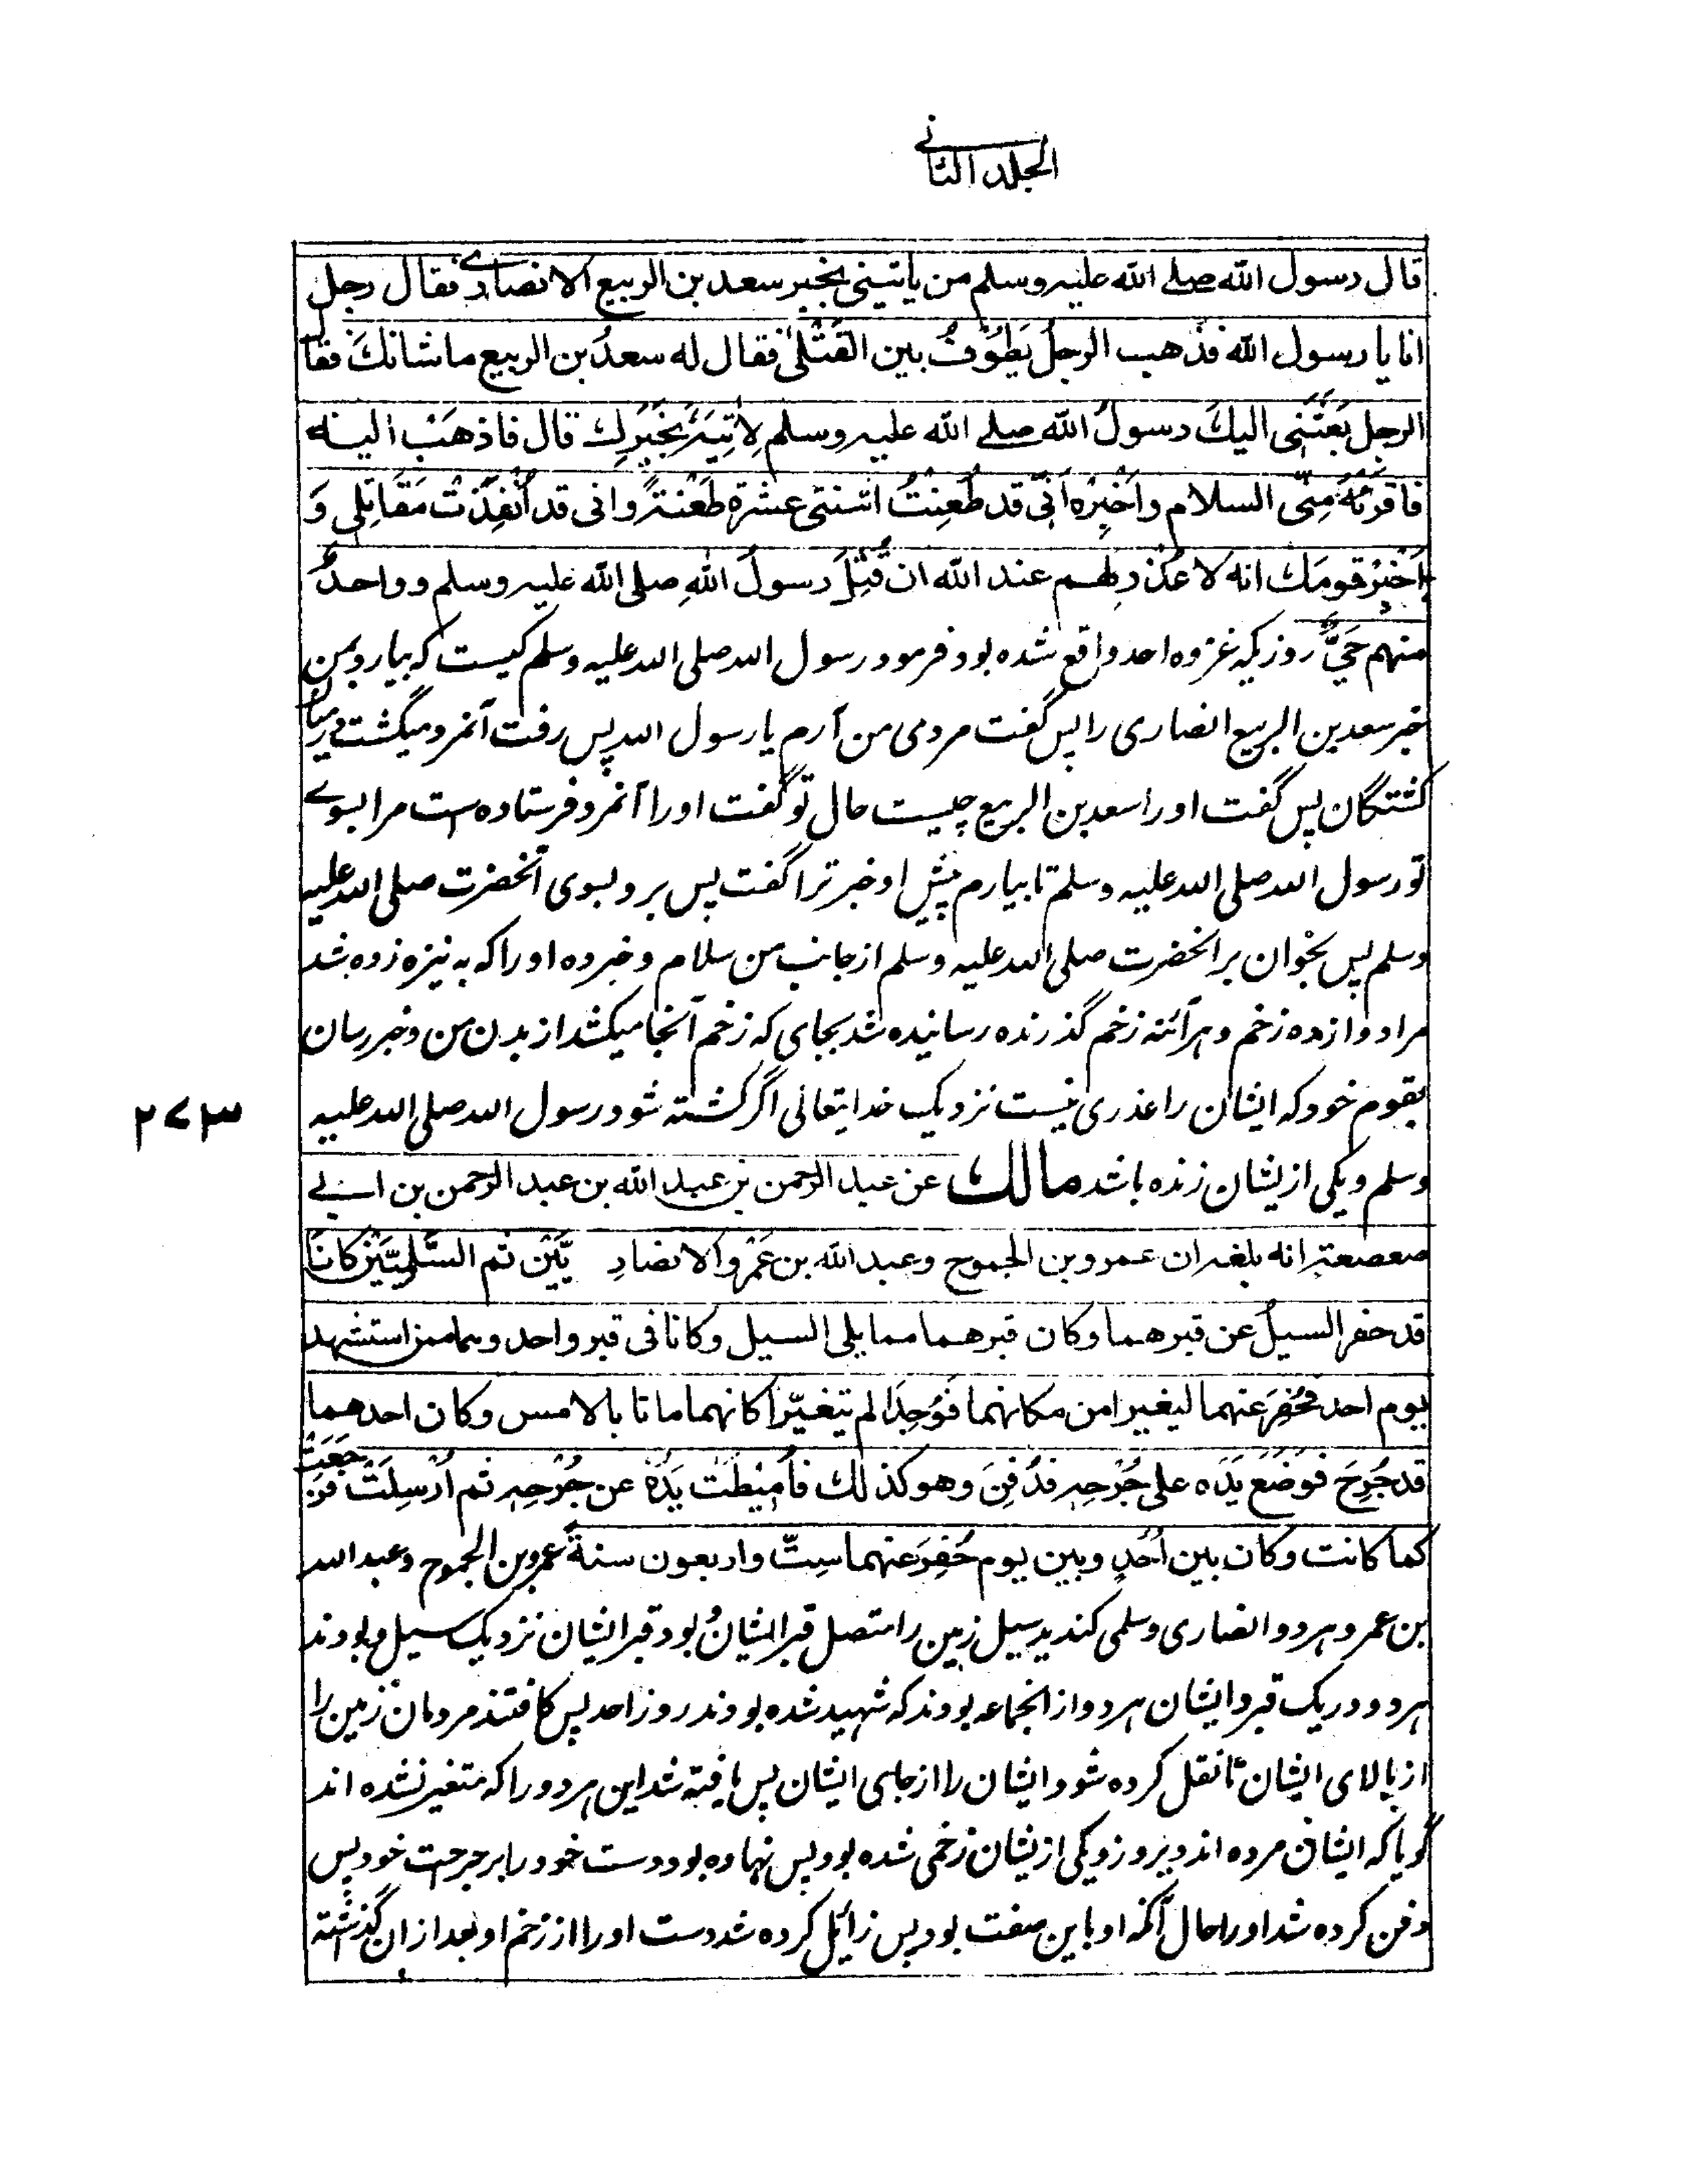 الجلد الثانی
قال رسول الله صلے الله علیہ وسلم من یأتینی بخبر سعد بن الربیع الانصاری فقال رجل
انا یا رسول الله فذهب الرجلُ یَطُوْفُ بین القَتْلیٰ فقال له سعدُ بن الربیع ما شانكَ فقال
الرجل بَعَثَنِی الیكَ رسولُ الله صلے الله علیہ وسلم لِاٰتِیَہٗ بخَبَرِكَ قال فاذهَبْ الیه
فاقرَئْهُ مِنِّی السلام واَخْبِرْہ اَنِّی قد طُعِنْتُ اثنتی عشرۃ طَعْنَۃً وانی قد اُنْفِذَتْ مَقَاتِلی وَ
اَخْبِرْ قومَكَ انه لا عُذْرَ لهم عند الله ان قُتِلَ رسولُ اللهِ صلی الله علیہ وسلم وواحدٌ
منهم حَیٌّ روزیکہ غزوہ احد واقع شدہ بود فرمود رسول اللہ صلی اللہ علیہ وسلم کیست کہ بیارد بمن
خبر سعد بن الربیع انصاری را پس گفت مردی من آرم یا رسول اللہ پس رفت آنمرد میگشت در میان
کشتگان پس گفت اورا سعد بن الربیع چیست حال تو گفت اورا آنمرد فرستادہ ست مرا بسوے
تو رسول اللہ صلی اللہ علیہ وسلم تا بیارم پیش او خبر ترا گفت پس برو بسوی آنحضرت صلی اللہ علیہ
وسلم پس بخوان بر آنحضرت صلی اللہ علیہ وسلم از جانب من سلام و خبر دہ اورا کہ بہ نیزہ زدہ شد
مرا دوازدہ زخم و ہر آئنہ زخم گذرندہ رسانیدہ شد بجای کہ زخم آنجا میکشد از بدن من و خبر رسان
بقوم خود کہ ایشان را عذری نیست نزدیک خدایتعالی اگر کشتہ شود رسول اللہ صلی اللہ علیہ
وسلم ویکی ازیشان زندہ باشد مالك عن عبد الرحمن بن عبد الله بن عبد الرحمن بن ابی
صعصعۃ انه بلغہ ان عمرو بن الجموح وعبد الله بن عَمْرو الانصارِ یَّیْن ثم السَّلَمِیَّیْن كانَا
قد حفر السیلُ عن قبرهما وكان قبرهما مما یلی السیل وكانا فی قبر واحد وهما ممن استشهد
یوم احد فحُفِرَ عنهما لیغیرا من مكانهما فَوُجِدَا لم یتغیّرا كانهما ماتا بالامس وكان احدهما
قد جُرِحَ فوَضَعَ یَدَه علی جُرْحِہ فدُفِنَ وهو كذلك فاُمِیْطَتْ یَدُہٗ عن جُرْحِہ ثم اُرْسِلَتْ فرَجَعَتْ
كما كانت وكان بین اُحُدٍ وبین یوم حُفِرَ عنهما سِتٌّ واربعون سنةً عمرو بن الجموح وعبد اللہ
بن عمرو ہر دو انصاری وسلمی کندید سیل زمین را متصل قبر ایشان و بود قبر ایشان نزدیک سیل و بودند
ہر دو در یک قبر و ایشان ہر دو از انجماعہ بودند کہ شہید شدہ بودند روز احد پس کافتند مردمان زمین را
از بالای ایشان تا نقل کردہ شود ایشان را از جای ایشان پس یافتہ شد این ہر دو را کہ متغیر نشدہ اند
گویا کہ ایشان مردہ اند دیروز ویکی ازیشان زخمی شدہ بود پس نہادہ بود دست خود را بر جرحت خود پس
دفن کردہ شد اورا حال آنکہ او باین صفت بود پس زائل کردہ شد دست اورا از زخم او بعد ازان گذشتہ
۲۷۳